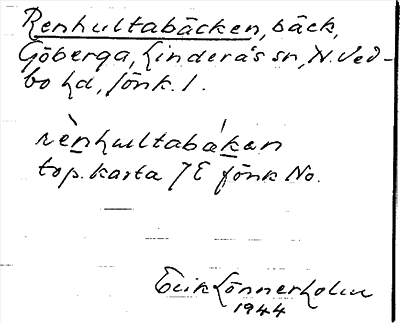 Renhultabäcken, bäck,
Göberga, Linderås sn, N. Ved-
bo hd, Jönk. l.
rènhultabákan
top. karta 7E Jönk No.
Erik Lönnerholm
1944